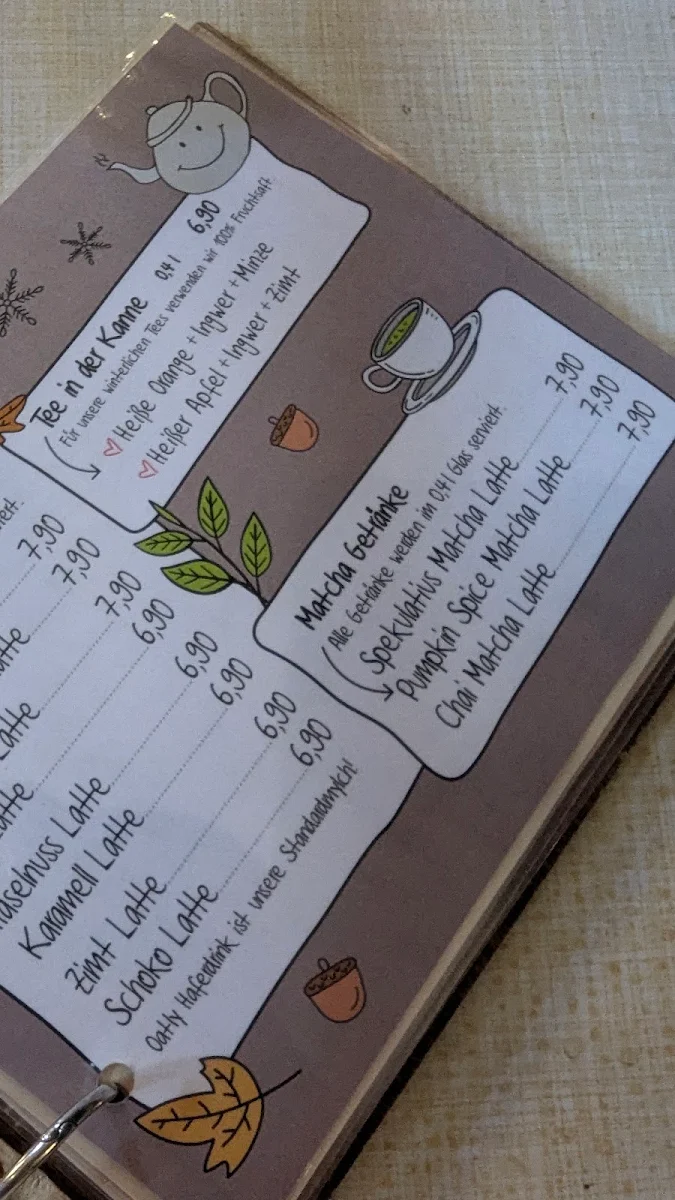 Tee in der Kanne 0,4 l 6,90
Für unsere winterlichen Tees verwenden wir 100% Fruchtsaft.
Heiße Orange + Ingwer + Minze
Heißer Apfel + Ingwer + Zimt
7,90
7,90
Latte 7,90
Latte 6,90
Haselnuss Latte 6,90
Karamell Latte 6,90
Zimt Latte 6,90
Schoko Latte 6,90
Oatly Haferdrink ist unsere Standardmylch!
Matcha Getränke
Alle Getränke werden im 0,4 l Glas serviert.
Spekulatius Matcha Latte 7,90
Pumpkin Spice Matcha Latte 7,90
Chai Matcha Latte 7,90